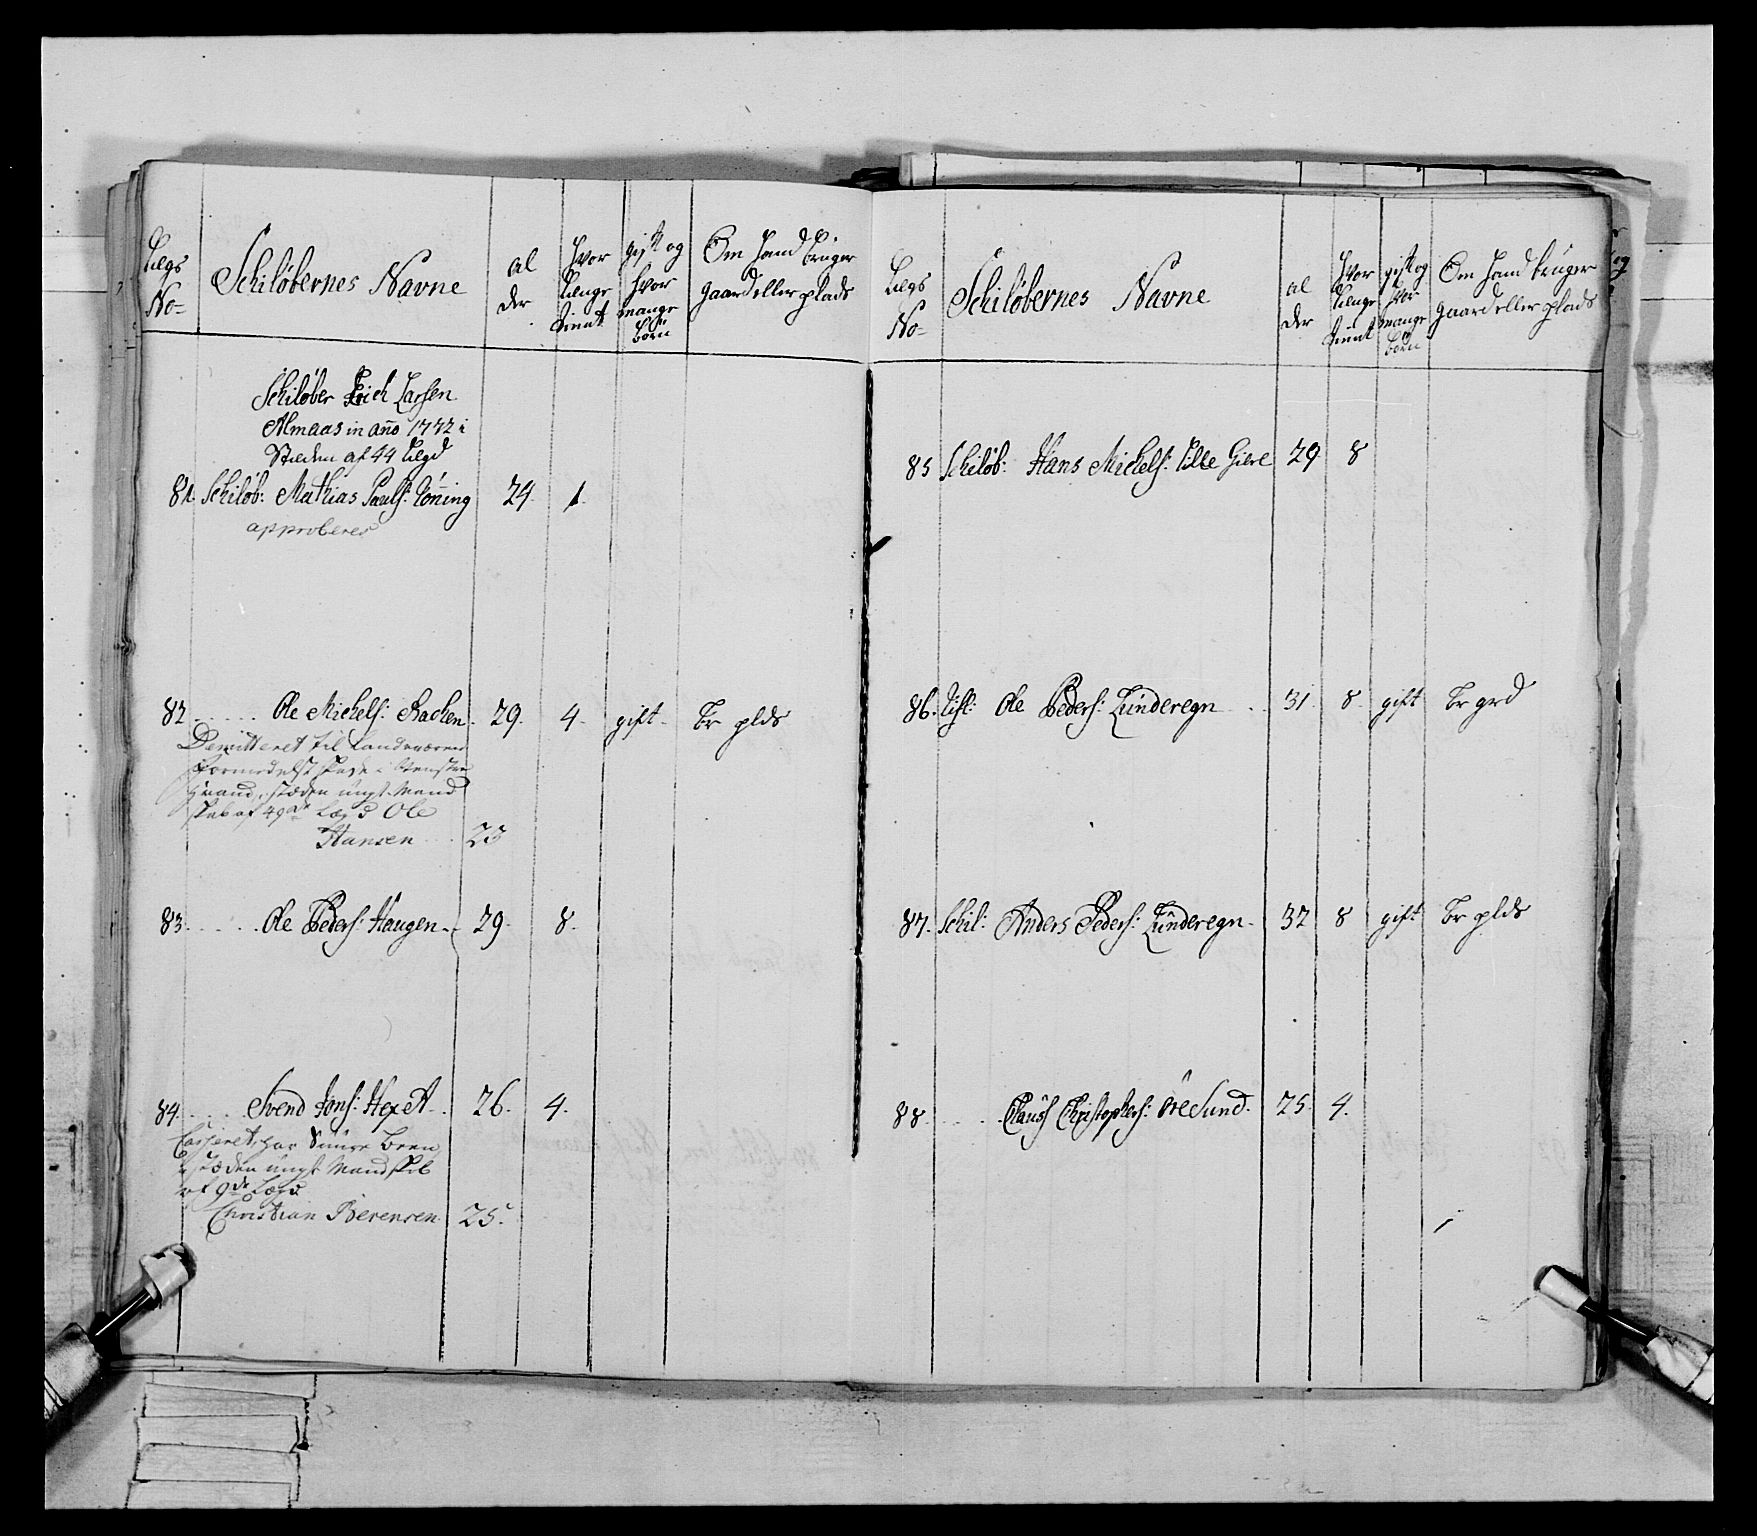 Lægs
No=
Schiløbernes Navne
al
der
hvor
længe
tient
gift og
hvor
mange
börn
Om hand brüger
gaard eller plads
Schiløber Erich Larsen
Almaas in año 1772 i
Steden af 44 Lægd
81 Schiløb: Mathias Pauls: Röning 24. 1.
approberes
82 Ole Michels: Bachen. 29. 4. gift. br plds
Demitteret til Landværnet
formedelst skade i Venstre
Haand, i stæden ungt Mand
skab af 49de Lægd Ole
Hansen 23
83. Ole Peders: Haugen. 29. 8.
84. Svend Jons: Hexet. 26. 4.
Casseret, har Bren
i stæden ungt Mandskb
af 9de Lægd
Christian Berensen 25.
Lægs
No=
Schiløbernes Navne
al
der
hvor
længe
tient
gift og
hvor
mange
börn
Om hand brüger
gaard eller plads
85 Schiløb: Hans Michels: Lille Giere 29 8
86. Ole Peders: Lünderegn 31. 8. gift br grd
87. Schil: Anders Peders: Lünderegn. 32 8 gift br plds
88. Clauss Christophers: Øresund. 25. 4.